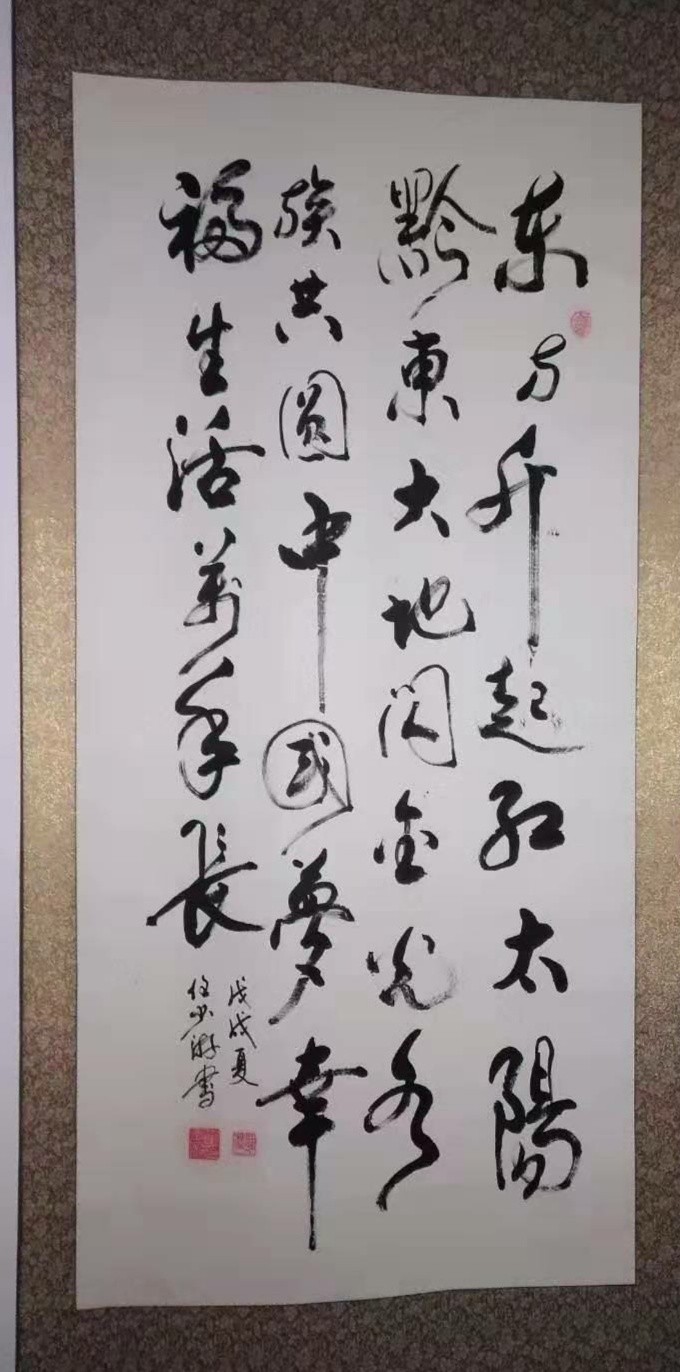 东方升起红太陽
黔東大地闪金光各
族共圆中國夢幸
福生活萬年長
戊戌夏
任少游書